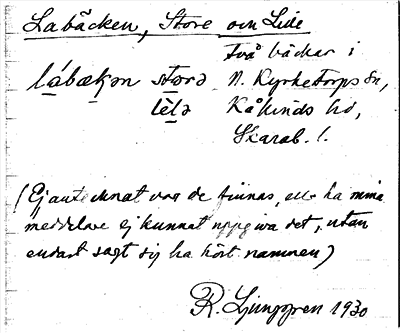 Labäcken, Store och Lille
Två bäckar i
lábækən stərə N. Kyrketorps sn,
lètə Kåkinds hd,
Skarab. l.
(Ej antecknat var de finnas, ella ha mina
meddelare ej kunnat uppgiva det, utan
endast sagt sig ha hört namnen)
R. Ljunggren 1930